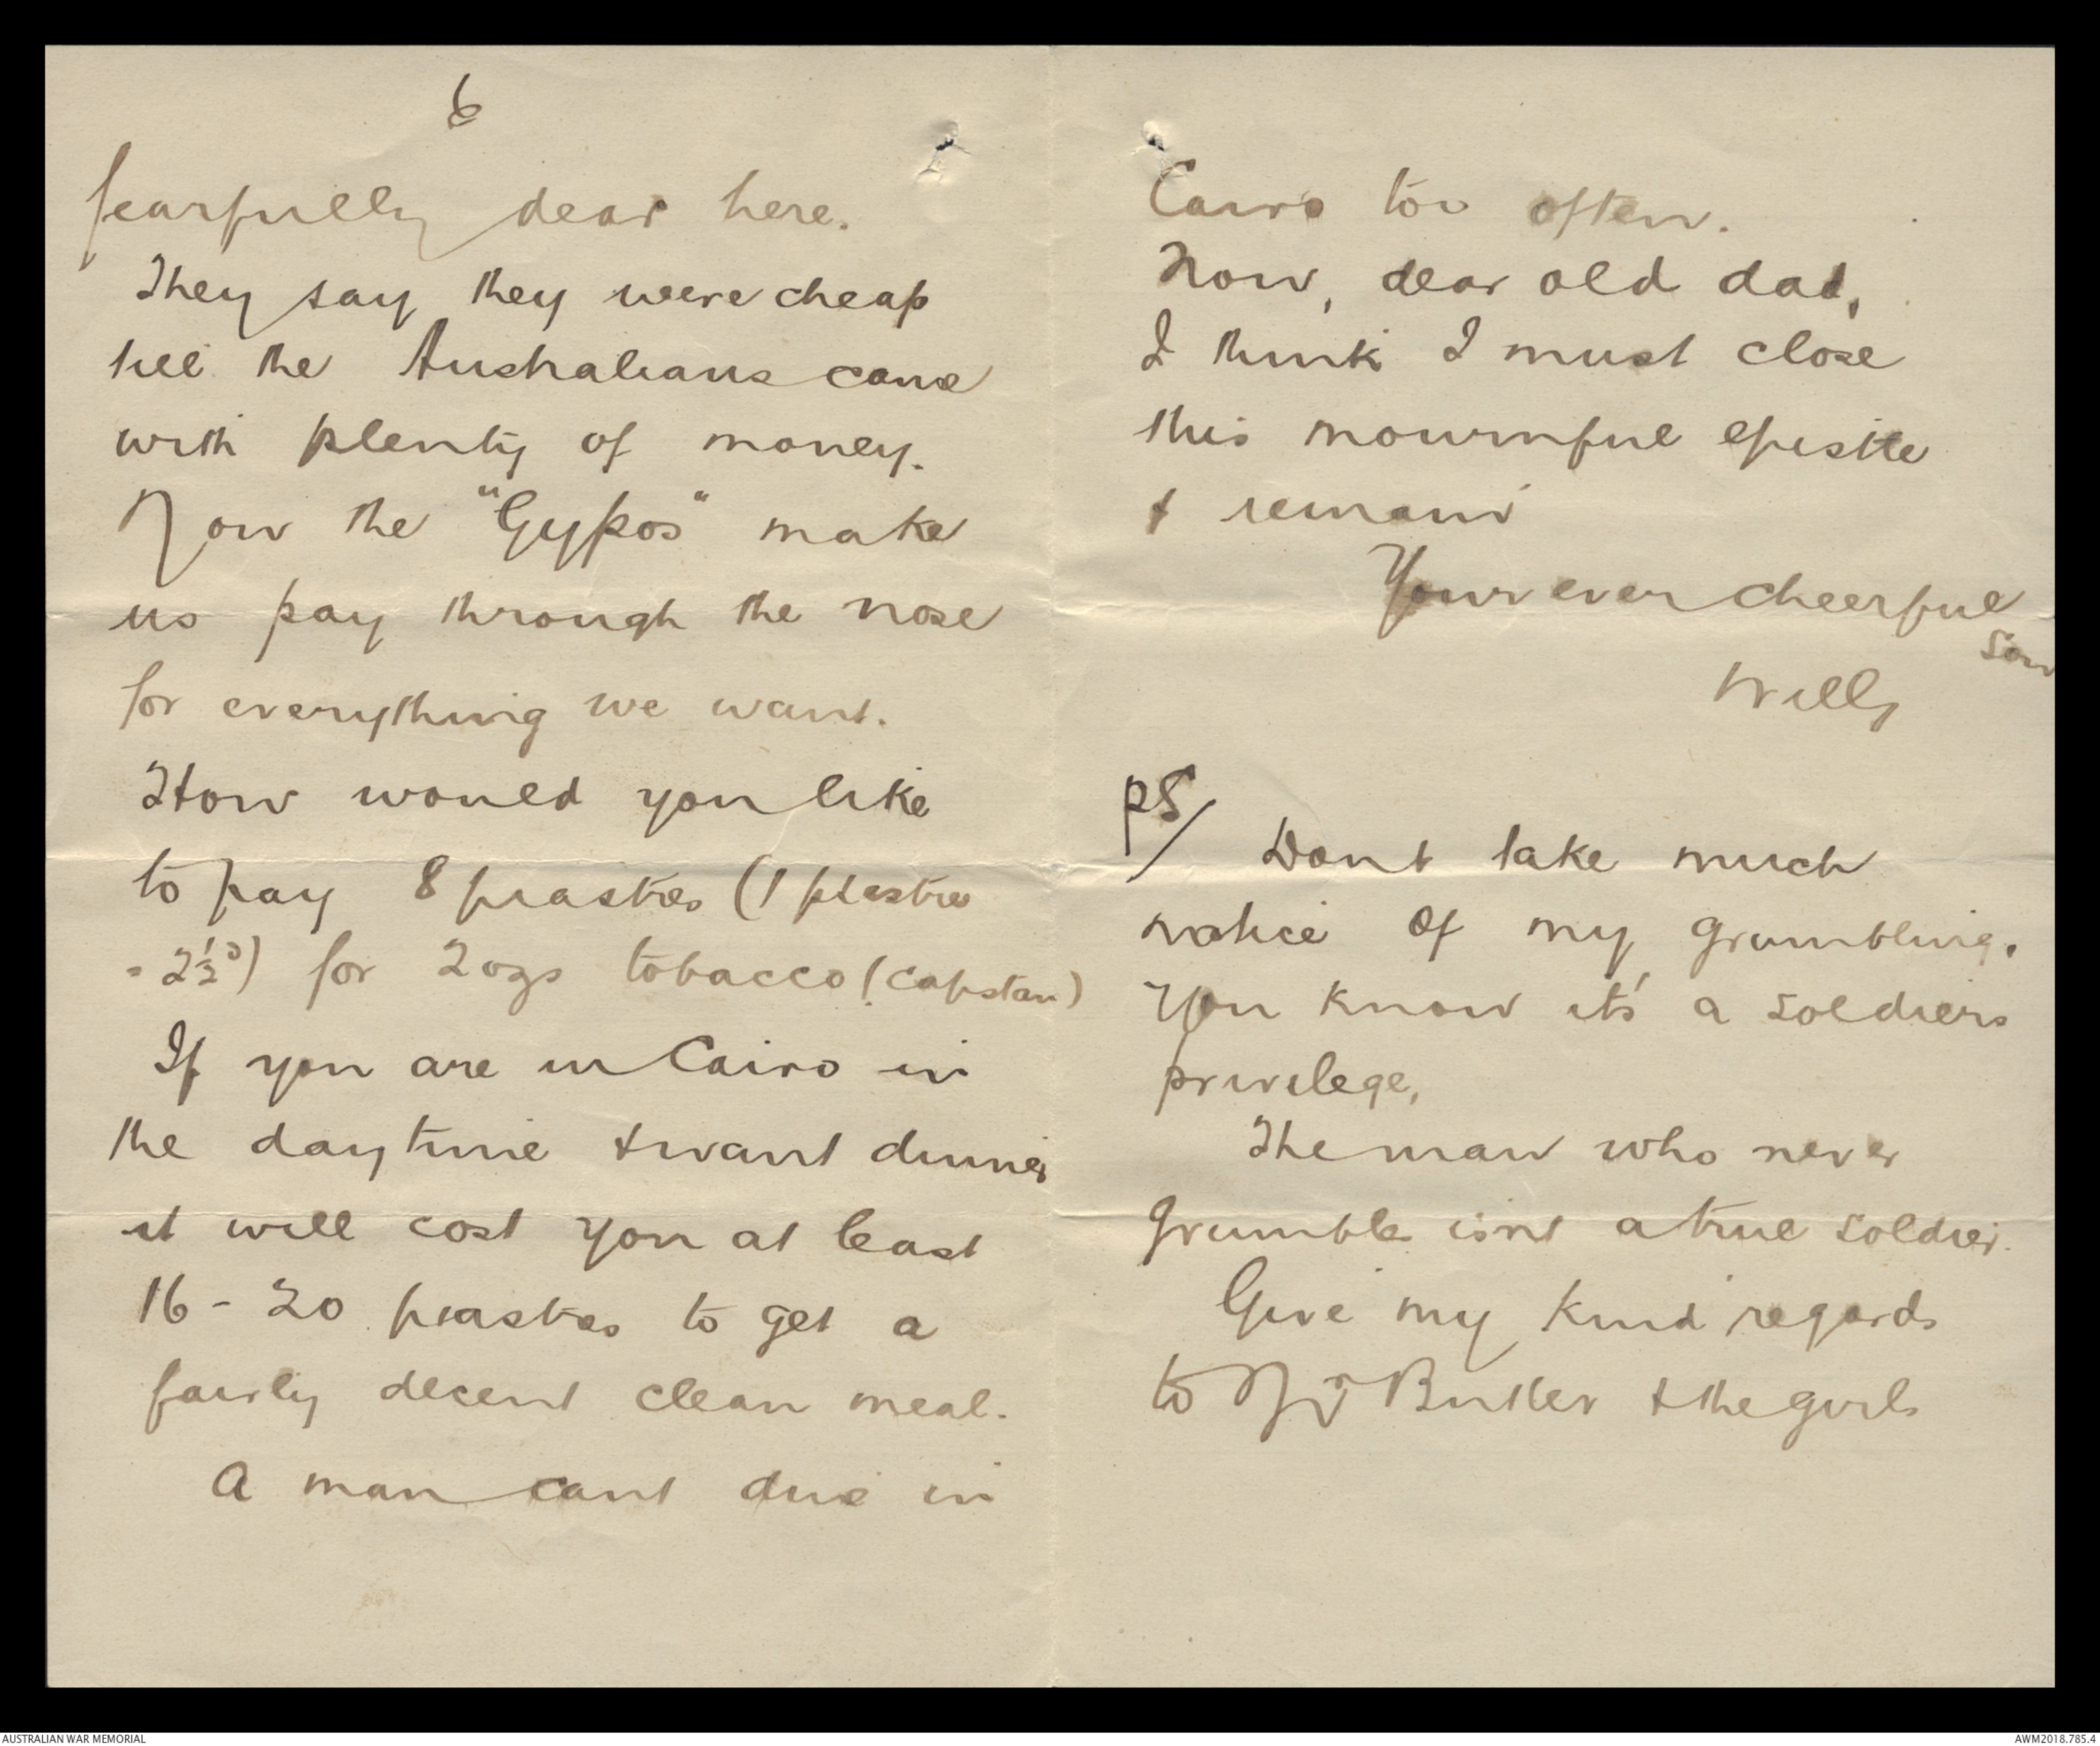 6
fearfully dear here.
They say they were cheap
till the Australians came
with plenty of money.
Now the "Gypos" make
us pay through the nose
for everything we want.
How would you like
to pay 8 piastres (1 piastre
= 2½d) for 2 ozs tobacco (Capstan)
If you are in Cairo in
the daytime & want dinner
it will cost you at least
16 - 20 piastres to get a
fairly decent clean meal.
A man cant dine in
Cairo too often.
Now, dear old dad,
I think I must close
this mournful epistle
& remain
Your ever cheerful
son
Willy
PS/ Dont take much
notice of my grumbling.
You know it's a soldiers
privilege,
The man who never
grumbles isnt a true soldier.
Give my kind regards
to Butler & the girls
AUSTRALIAN WAR MEMORIAL
AWM2018.785.4